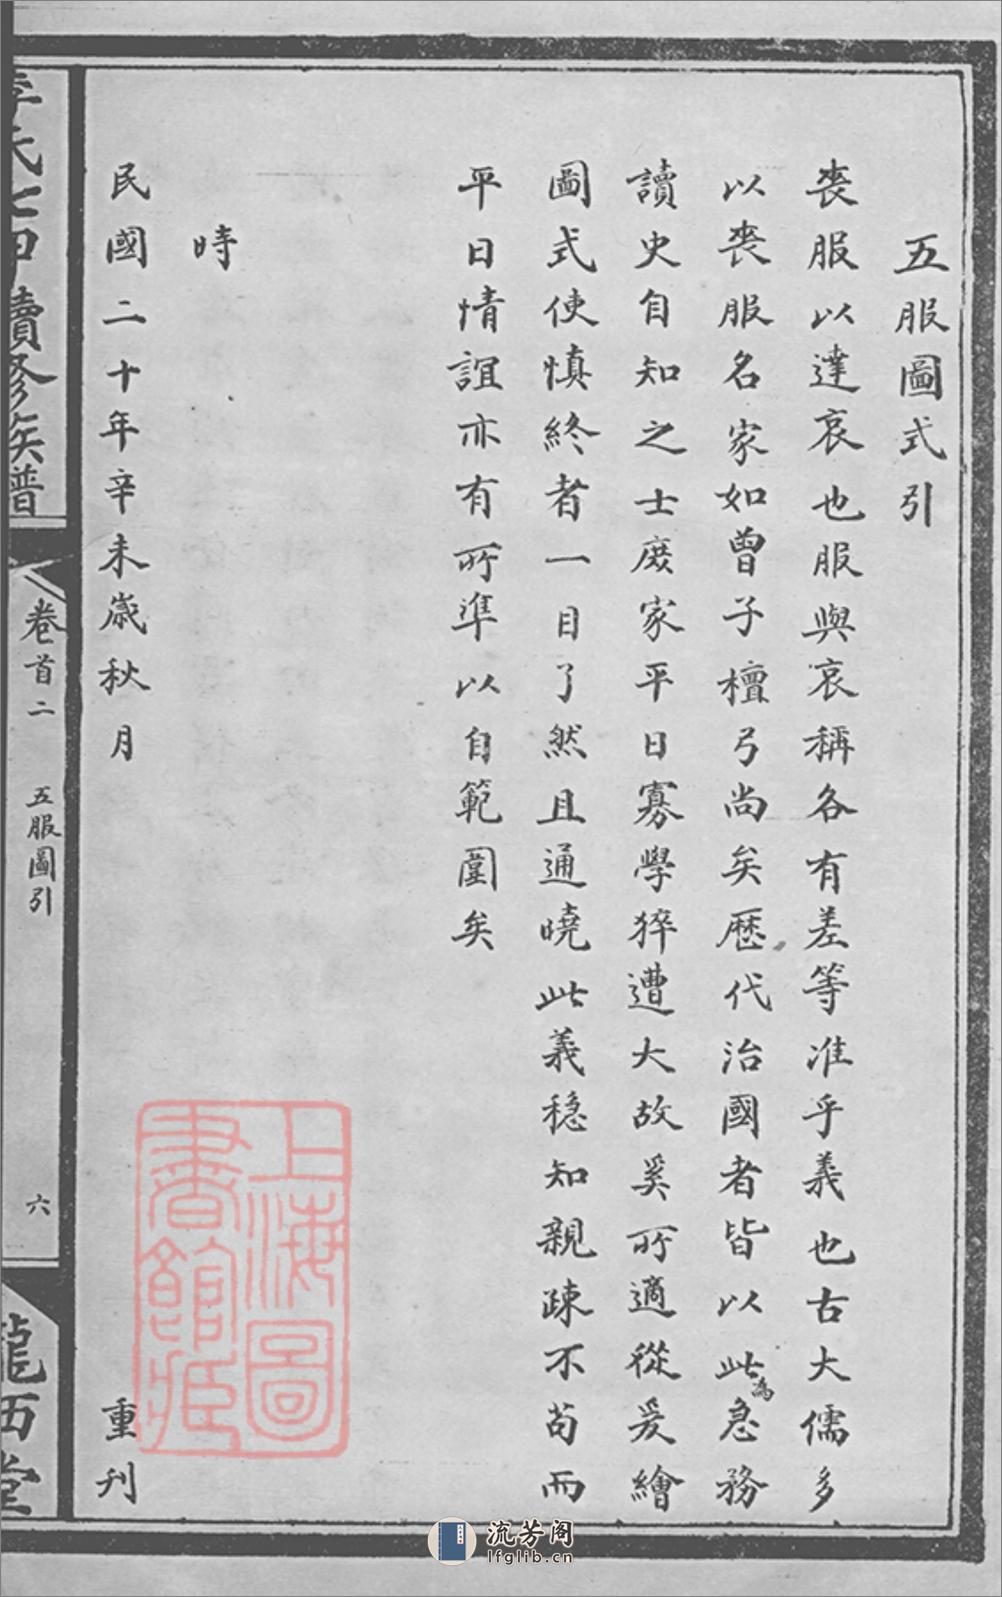 五服圖式引
喪服以達哀也服與哀稱各有差等准乎義也古大儒多
以喪服名家如曾子檀弓尚矣歷代治國者皆以此為急務
讀史自知之士庶家平日寡學猝遭大故奚所適從爰繪
圖式使慎終者一目了然且通曉此義穩知親疎不苟而
平日情誼亦有所準以自範圍矣
時
民國二十年辛未歲秋月 重刊
李氏七甲續修族譜
卷首二 五服圖引 六
隴西堂
上海圖書館藏
流芳阁
lfglib.cn